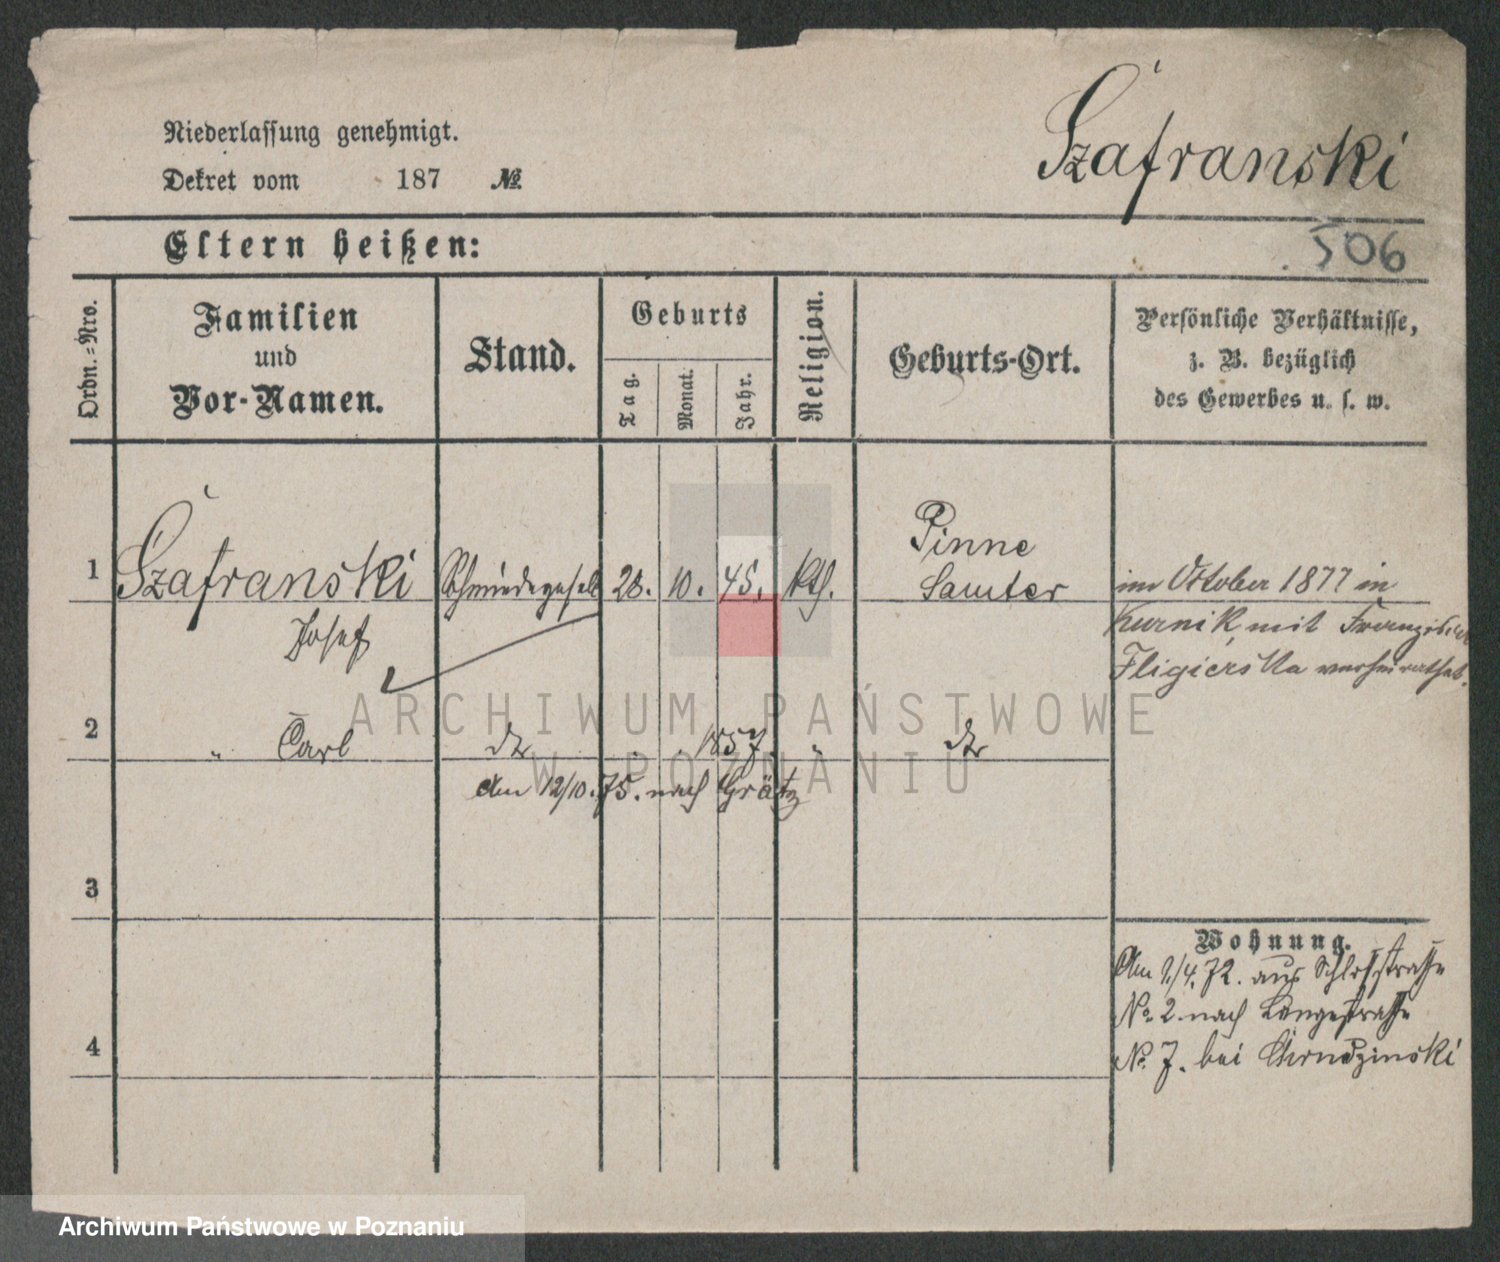 Szafranski
Niederlassung genehmigt.
Dekret vom 187 №
Eltern heißen:
506
Ordn.-Nro.
Familien
und
Vor-Namen.
Stand.
Geburts
Tag.
Monat.
Jahr.
Religion.
Geburts-Ort.
Persönliche Verhältnisse,
z. B. bezüglich
des Gewerbes u. s. w.
1 Szafranski Schmiedegesell 28. 10. 45. kth. Pinne
Samter
Josef
im October 1877 in
Kurnik mit Franziska
Fligierska verheirathet.
2 " Carl dto . . 1857. " dto
Am 12/10.75. nach Grätz
3
4
Wohnung.
Am 1/4.72. aus Schloßstraße
No. 2 nach Langestraße
No. 7. bei
ARCHIWUM PAŃSTWOWE
W POZNANIU
Archiwum Państwowe w Poznaniu